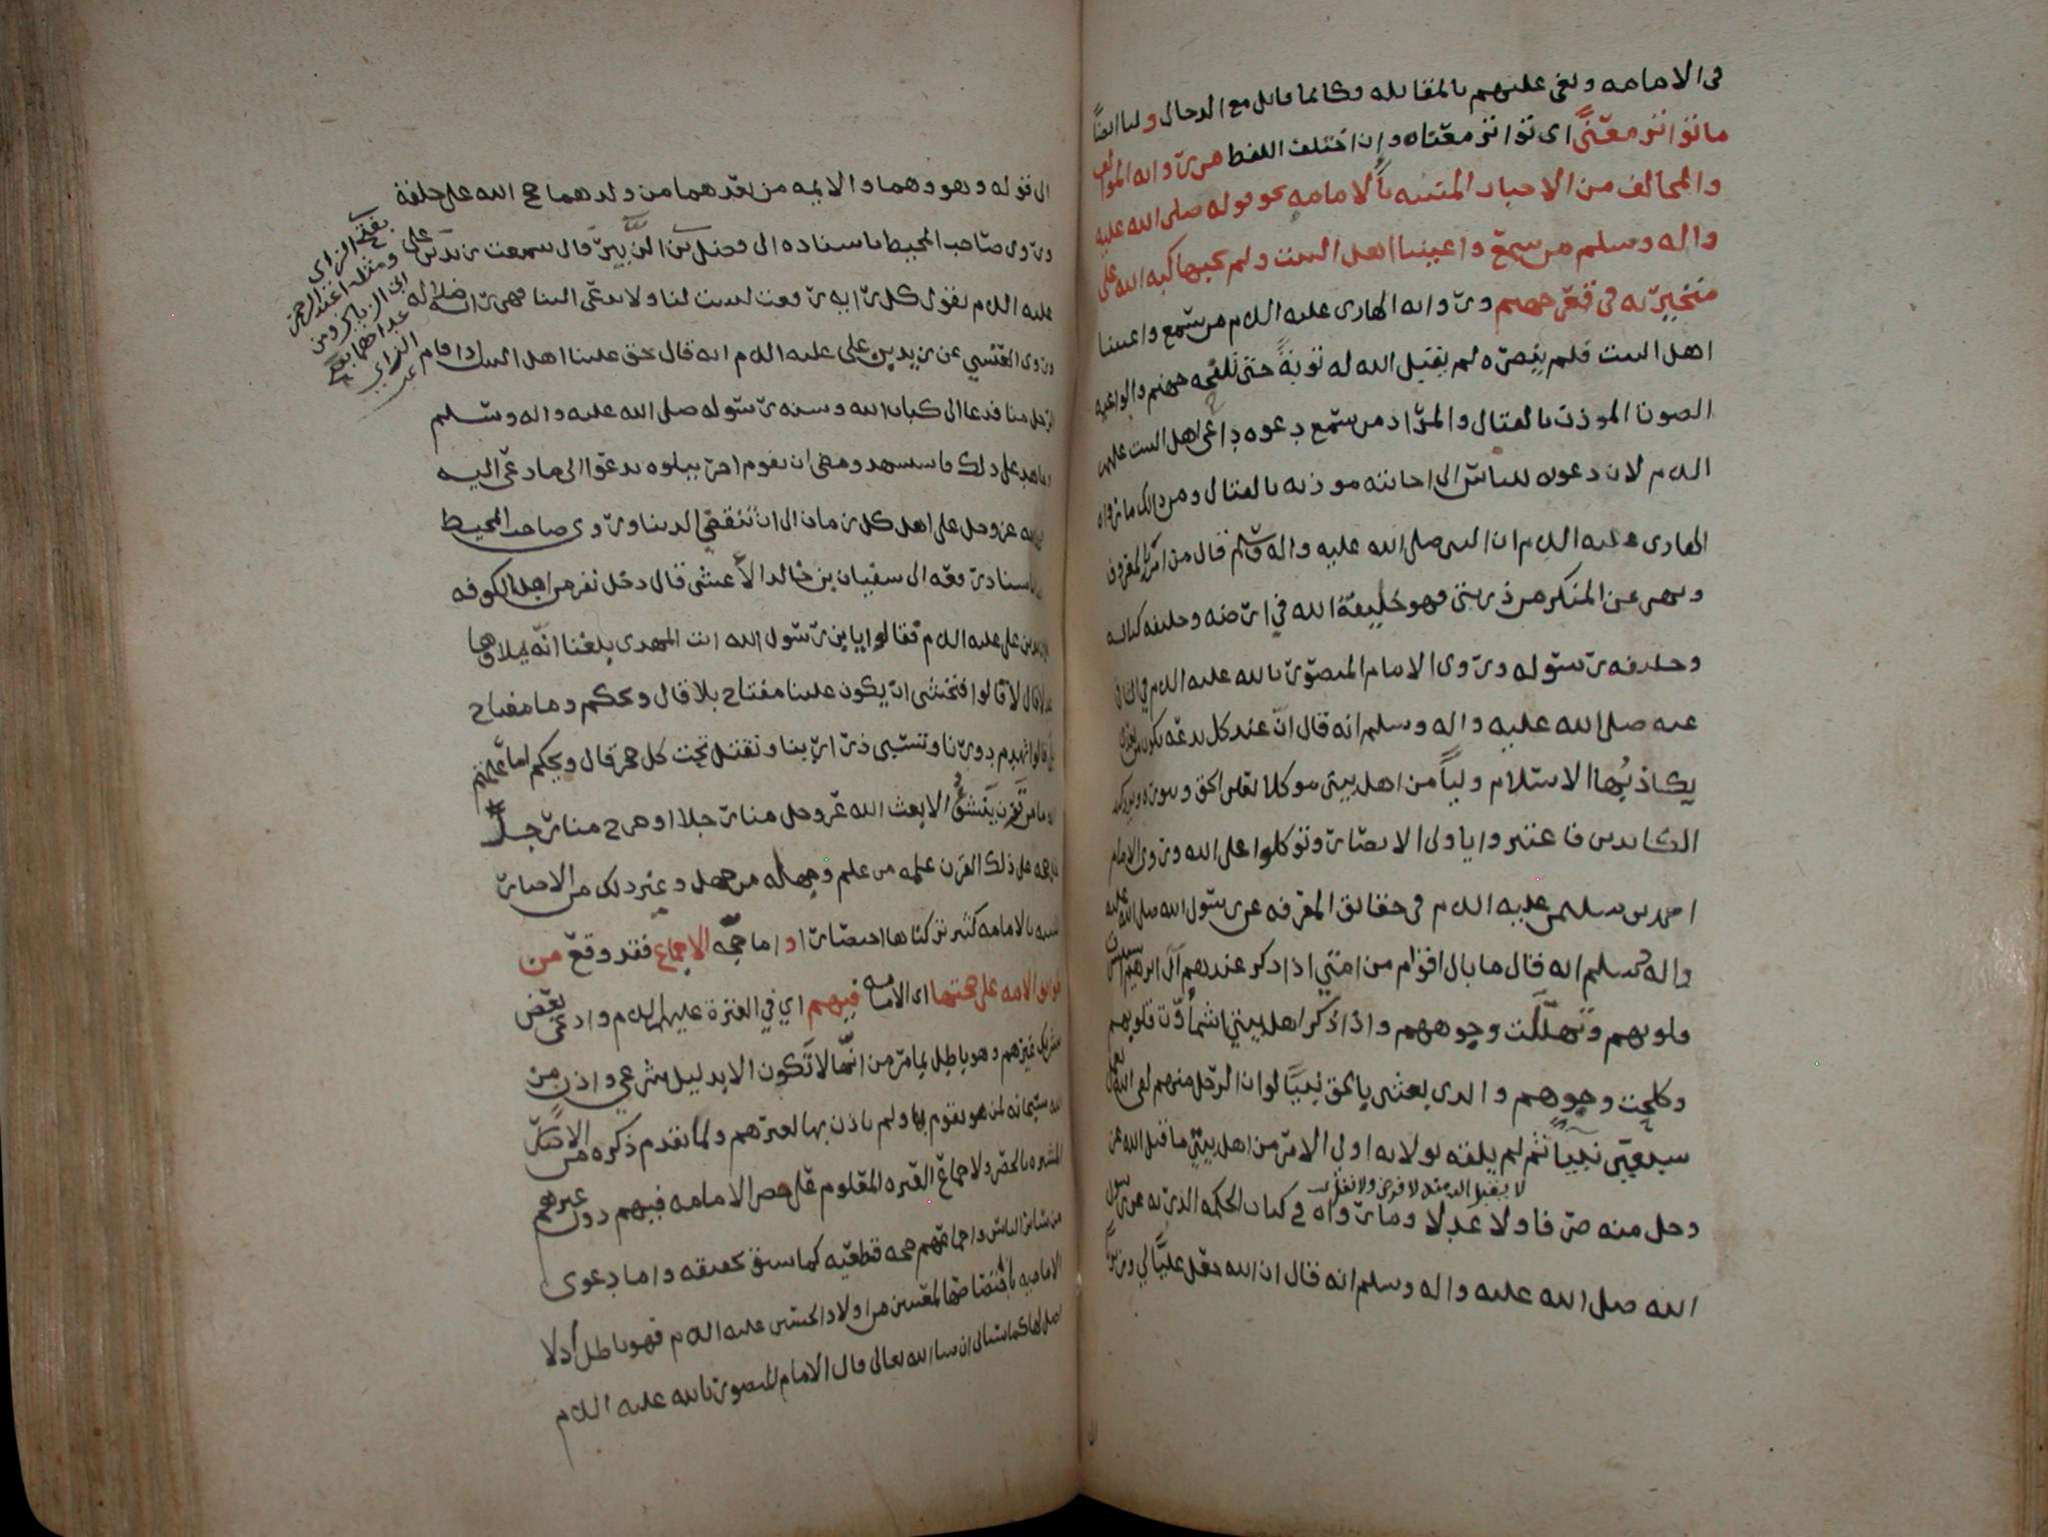 في الامامه وبغى عليهم بالمقاتله فكانما قاتل مع الدجال ولنا ايضاً
ما تواتر معنىً اى تواتر معناه وإن اختلف اللفظ من رواية الموالف
والمخالف من الاخبار المتنبه بالامامه نحو قوله صلى الله عليه
واله وسلم من سمع واعيتنا اهل البيت ولم يجبها كبه الله على
منخريه في قعر جهنم ورواية الهادى عليه السلام من سمع واعيتنا
اهل البيت فلم ينصره لم يقبل الله له توبةً حتى تلفحه جهنم والواعيه
الصوت الموذن بالقتال والمراد من سمع دعوه داعى اهل البيت عليهم
السلام لان دعوته للناس الى اجابته موذنه بالقتال ومن ذلك ما رواه
الهادى عليه السلام ان النبى صلى الله عليه واله وسلم قال من امر بالمعروف
ونهى عن المنكر من ذريتى فهو خليفة الله في ارضه وخليفه كتابه
وخليفه رسوله وروى الامام المنصور بالله عليه السلام في الشافى
عنه صلى الله عليه واله وسلم انه قال ان عند كل بدعه تكون من بعدى
يكاد بها الاسلام ولياً من اهل بيتى موكلا يعلن الحق وينوره ويرد كيد
الكائدين فاعتبروا ياولى الابصار وتوكلوا على الله وروى الامام
احمد بن سليمن عليه السلام فى حقائق المعرفه عن رسول الله صلى الله عليه
واله وسلم انه قال ما بال اقوام من امتى اذا ذكر عندهم آل ابرهيم استبشرت
قلوبهم وتهللت وجوههم واذا ذكر اهل بيتى اشمأزت قلوبهم
وكلحت وجوههم والذى بعثنى بالحق نبيّاً لو ان الرجل منهم لقى الله بعمل
سبعين نبيّاً ثم لم يلقه بولايه اولى الامر من اهل بيتى ما قبل الله عز
لا يقبل الله منه لا فرض ولا نفل
وجل منه صرفا ولا عدلا وما رواه في كتاب الحكمه الدريه عن رسول
الله صلى الله عليه واله وسلم انه قال ان الله جعل عليًّا لي وزيرا
الى قوله وهو وهما والايمه من بعدهما من ولدهما حجج الله على خلقه
وروى صاحب المحيط باسناده الى فضيل بن الزبير قال سمعت زيد بن على
عليه السلام يقول كل رايه رفعت ليست لنا ولا تدعى الينا فهى رايه ضلاله
وروى العنسي عن زيد بن على عليه السلام انه قال حق علينا اهل البيت اذا قام
الرجل منا فدعا الى كتاب الله وسنه رسوله صلى الله عليه واله وسلم
وجاهد على ذلك فاستشهد ومضى ان يقوم اخر يتلوه يدعوا الى ما دعى اليه
حجه لله عز وجل على اهل كل زمان الى ان تنقضي الدنيا وروى صاحب المحيط
باسناد رفعه الى سفيان بن خالد الأعشى قال دخل نفر من اهل الكوفه
على زيد بن على عليه السلام فقالوا يابن رسول الله انت المهدى بلغنا انه يملاوها
عدلا قال لا قالوا فنخشى ان يكون علينا مفتاح بلا قال ويحكم وما مفتاح
بلا قالوا تهدم دورنا وتسبى ذرارينا ونقتل تحت كل حجر قال ويحكم اما علمتم
انه ما من قرن ينشؤُ الا بعث الله عز وجل منا رجلا او خرج منا رجلٌ
حجه على ذلك القرن علمه من علم وجهله من جهل وغير ذلك من الاخبار
المتنبه بالامامه كثير تركناها اختصارا واما حجه الاجماع فقد وقع من
طوايف الامه على صحتها اى الامامه فيهم اي في العترة عليهم السلام وادعى بعض
تشريك غيرهم وهو باطل بما مر من انّها لا تكون الا بدليل شرعي واذن من
الله سبحانه لمن هو يقوم بها ولم ياذن بها لغيرهم ولما تقدم ذكره من الادله
المشيره بالحصر ولاجماع العتره المعلوم على حصر الامامه فيهم دون غيرهم
من سائر الناس واجماعهم حجه قطعيّه كما سبق تحقيقه واما دعوى
الاماميه باختصاصها لمعينين من اولاد الحسين عليه السلام فهو باطل اذ لا
اصل لها كما سياتى ان شاء الله تعالى قال الامام المنصور بالله عليه السلام